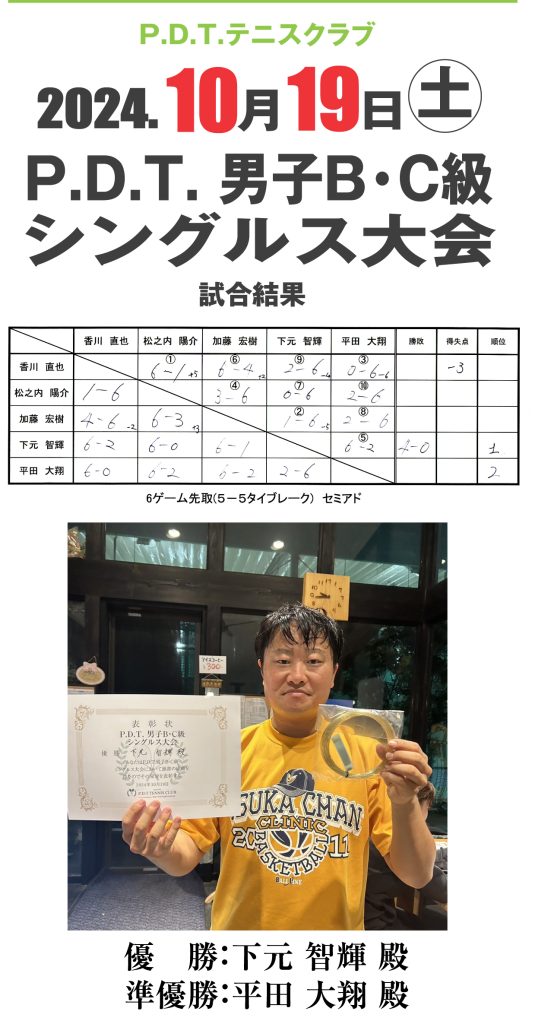 P.D.T.テニスクラブ
2024. 10月19日 土
P.D.T. 男子B・C級
シングルス大会
試合結果
香川 直也 松之内 陽介 加藤 宏樹 下元 智輝 平田 大翔 勝敗 得失点 順位
香川 直也 ① 6-1 +5 ⑥ 6-4 +2 ⑨ 2-6 -4 ③ 0-6 -6 -3
松之内 陽介 1-6 ④ 3-6 ⑦ 0-6 ⑩ 2-6
加藤 宏樹 4-6 -2 6-3 +3 ② 1-6 -5 ⑧ 2-6
下元 智輝 6-2 6-0 6-1 ⑤ 6-2 4-0 1
平田 大翔 6-0 6-2 6-2 2-6 2
6ゲーム先取(5-5タイブレーク) セミアド
アイスコーヒー
¥300
表彰状
P.D.T. 男子B・C級
シングルス大会
優勝 下元 智輝 殿
2024年10月19日
P.D.T TENNIS CLUB
ASUKA CHAN
CLINIC
2011
BASKETBALL
優 勝:下元 智輝 殿
準優勝:平田 大翔 殿